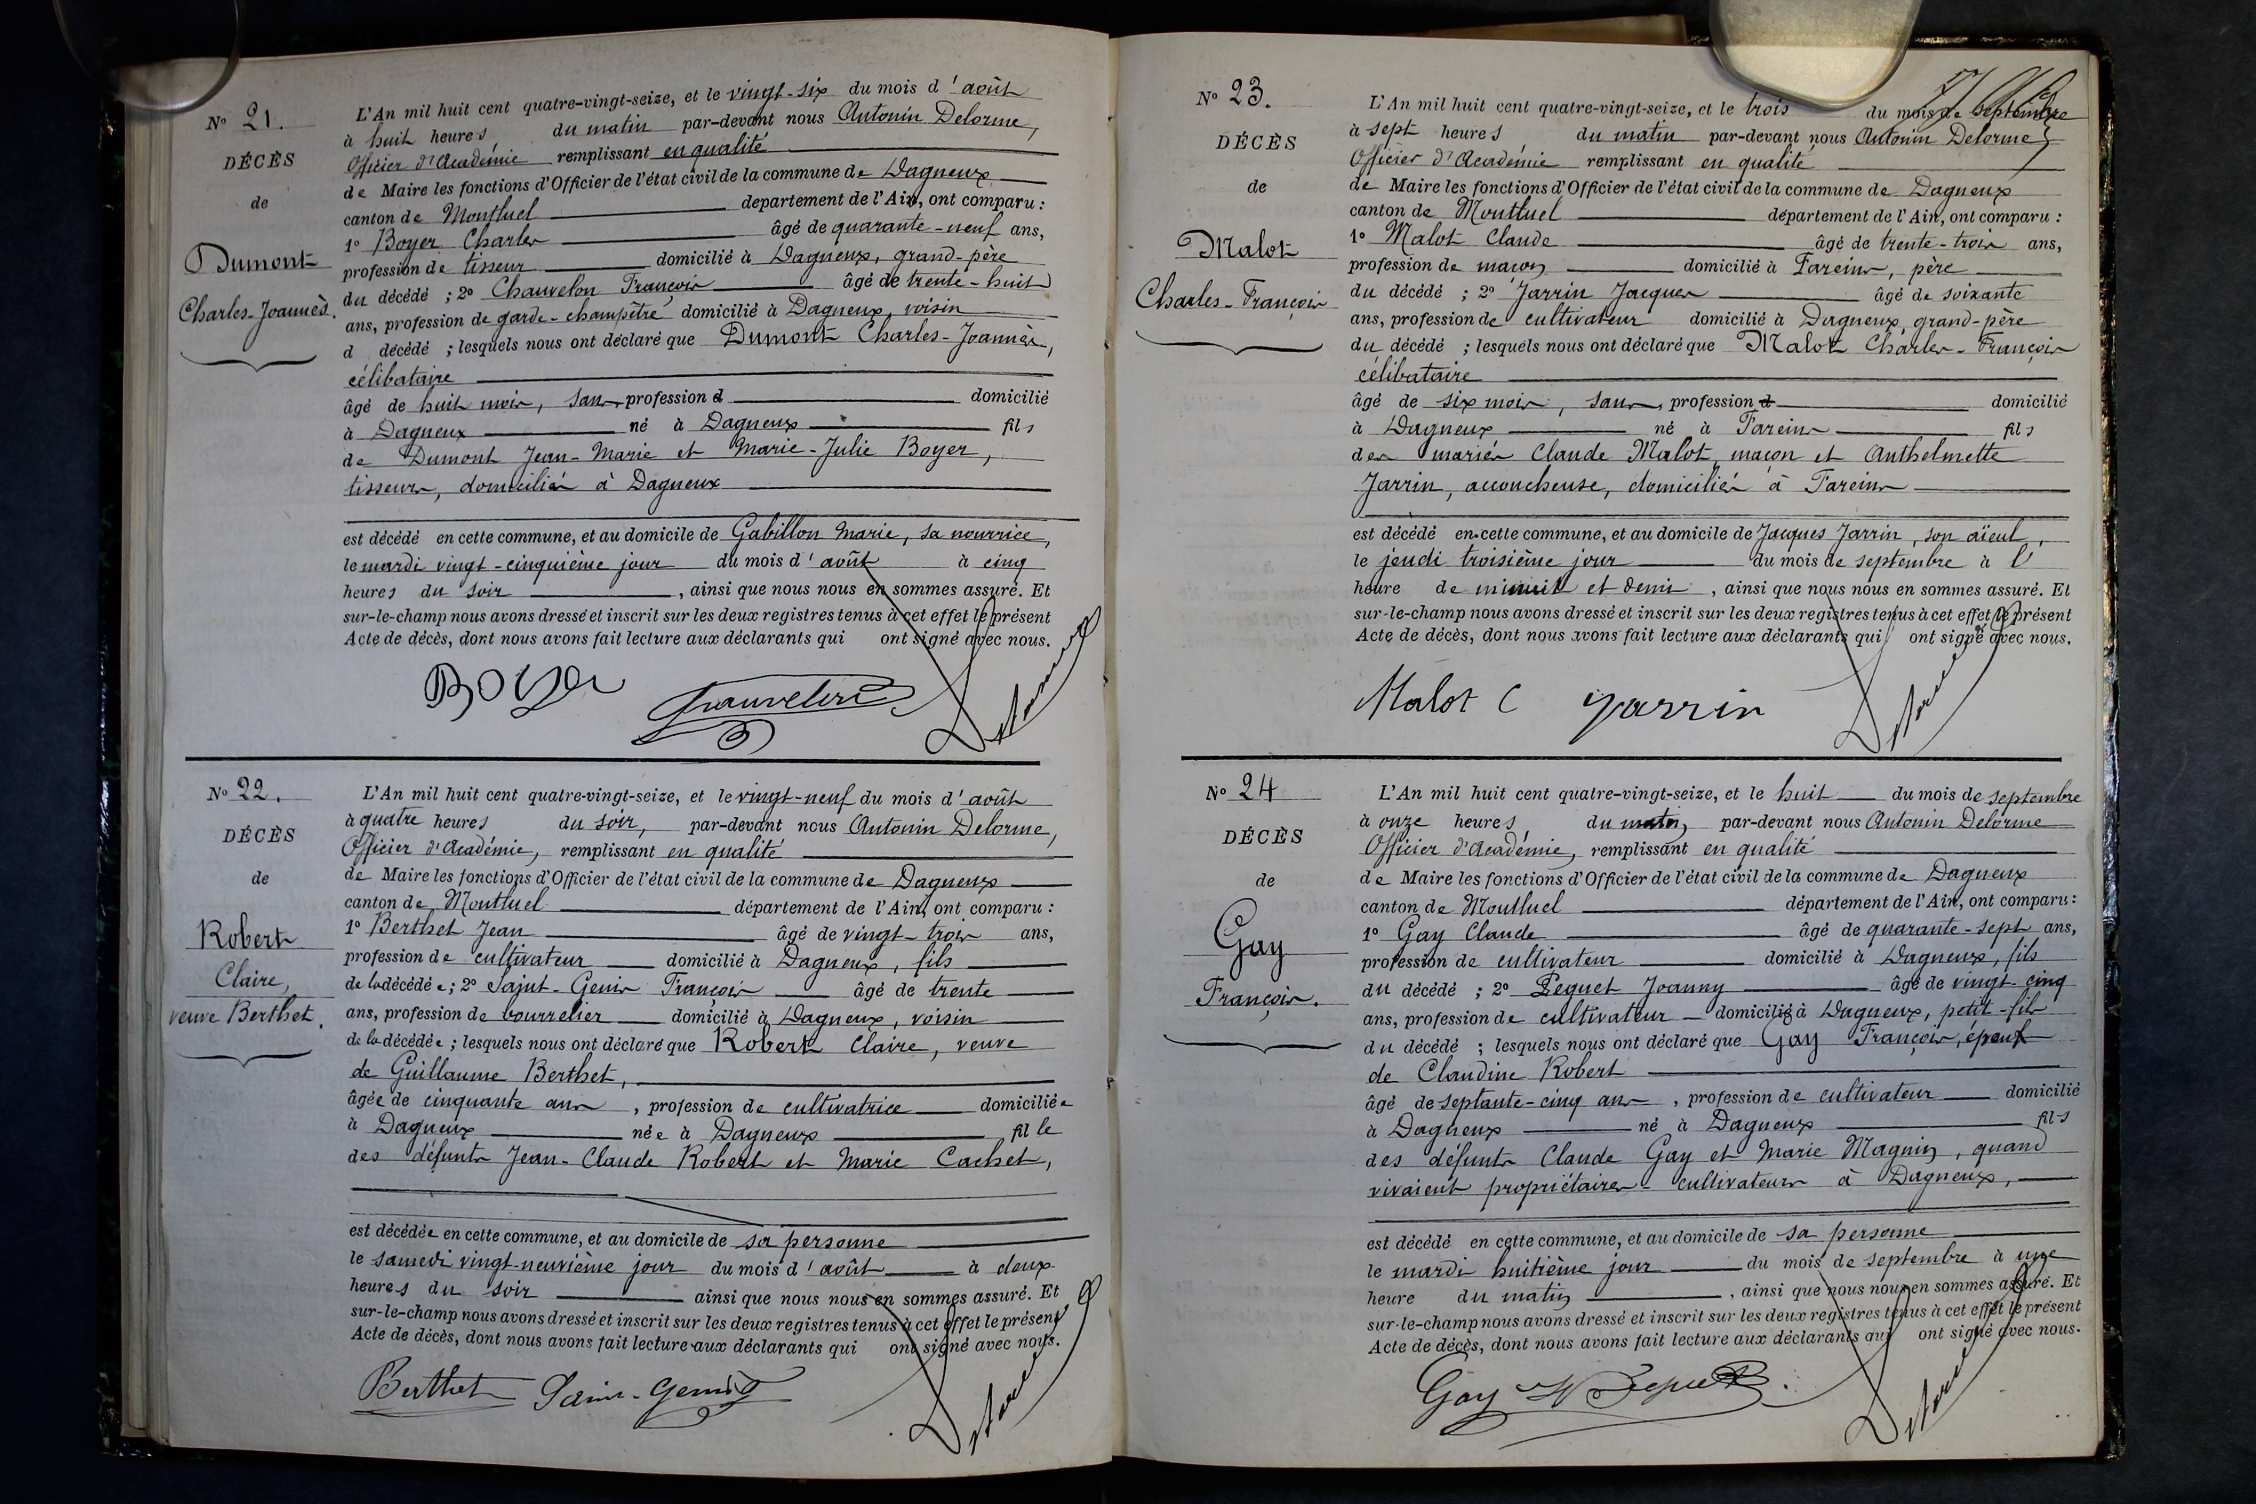 Nº 21.
DÉCÈS
de
Dumont
Charles-Joannès.
L'An mil huit cent quatre-vingt-seize, et le vingt-six du mois d'août
à huit heures du matin par-devant nous Antonin Delorme,
Officier d'Académie remplissant en qualité
de Maire les fonctions d'Officier de l'état civil de la commune de Dagneux
canton de Montluel département de l'Ain, ont comparu :
1º Boyer Charles âgé de quarante-neuf ans,
profession de tisseur domicilié à Dagneux, grand-père
du décédé ; 2º Chauvelon François âgé de trente-huit
ans, profession de garde-champêtre domicilié à Dagneux, voisin
d décédé ; lesquels nous ont déclaré que Dumont Charles-Joannès,
célibataire
âgé de huit mois, sans profession d domicilié
à Dagneux né à Dagneux fils
de Dumont Jean-Marie et Marie-Julie Boyer,
tisseurs, domiciliés à Dagneux
est décédé en cette commune, et au domicile de Gabillon Marie, sa nourrice,
le mardi vingt-cinquième jour du mois d'août à cinq
heures du soir, ainsi que nous nous en sommes assuré. Et
sur-le-champ nous avons dressé et inscrit sur les deux registres tenus à cet effet le présent
Acte de décès, dont nous avons fait lecture aux déclarants qui ont signé avec nous.
Boyer Chauvelon Delorme
Nº 22.
DÉCÈS
de
Robert
Claire,
veuve Berthet.
L'An mil huit cent quatre-vingt-seize, et le vingt-neuf du mois d'août
à quatre heures du soir, par-devant nous Antonin Delorme,
Officier d'Académie, remplissant en qualité
de Maire les fonctions d'Officier de l'état civil de la commune de Dagneux
canton de Montluel département de l'Ain, ont comparu :
1º Berthet Jean âgé de vingt-trois ans,
profession de cultivateur domicilié à Dagneux, fils
de la décédée ; 2º Saint-Genis François âgé de trente
ans, profession de bourrelier domicilié à Dagneux, voisin
de la décédée ; lesquels nous ont déclaré que Robert Claire, veuve
de Guillaume Berthet,
âgée de cinquante ans, profession de cultivatrice domiciliée
à Dagneux née à Dagneux fille
des défunts Jean-Claude Robert et Marie Cachet,
est décédée en cette commune, et au domicile de sa personne
le samedi vingt-neuvième jour du mois d'août à deux
heures du soir ainsi que nous nous en sommes assuré. Et
sur-le-champ nous avons dressé et inscrit sur les deux registres tenus à cet effet le présent
Acte de décès, dont nous avons fait lecture aux déclarants qui ont signé avec nous.
Berthet Saint-Genis Delorme
Nº 23.
DÉCÈS
de
Malot
Charles-François
L'An mil huit cent quatre-vingt-seize, et le trois du mois de septembre
à sept heures du matin par-devant nous Antonin Delorme
Officier d'Académie remplissant en qualité
de Maire les fonctions d'Officier de l'état civil de la commune de Dagneux
canton de Montluel département de l'Ain, ont comparu :
1º Malot Claude âgé de trente-trois ans,
profession de maçon domicilié à Fareins, père
du décédé ; 2º Jarrin Jacques âgé de soixante
ans, profession de cultivateur domicilié à Dagneux, grand-père
du décédé ; lesquels nous ont déclaré que Malot Charles-François
célibataire
âgé de six mois, sans profession d domicilié
à Dagneux né à Fareins fils
des mariés Claude Malot, maçon et Anthelmette
Jarrin, accoucheuse, domiciliés à Fareins
est décédé en cette commune, et au domicile de Jacques Jarrin, son aïeul,
le jeudi troisième jour du mois de septembre à l'
heure de minuit et demi, ainsi que nous nous en sommes assuré. Et
sur-le-champ nous avons dressé et inscrit sur les deux registres tenus à cet effet le présent
Acte de décès, dont nous avons fait lecture aux déclarants qui ont signé avec nous.
Malot C Jarrin Delorme
Nº 24
DÉCÈS
de
Gay
François.
L'An mil huit cent quatre-vingt-seize, et le huit du mois de septembre
à onze heures du matin, par-devant nous Antonin Delorme
Officier d'Académie, remplissant en qualité
de Maire les fonctions d'Officier de l'état civil de la commune de Dagneux
canton de Montluel département de l'Ain, ont comparu :
1º Gay Claude âgé de quarante-sept ans,
profession de cultivateur domicilié à Dagneux, fils
du décédé ; 2º Pequet Joanny âgé de vingt-cinq
ans, profession de cultivateur domicilié à Dagneux, petit-fils
du décédé ; lesquels nous ont déclaré que Gay François, époux
de Claudine Robert
âgé de septante-cinq ans, profession de cultivateur domicilié
à Dagneux né à Dagneux fils
des défunts Claude Gay et Marie Magnin, quand
vivaient propriétaires-cultivateurs à Dagneux,
est décédé en cette commune, et au domicile de sa personne
le mardi huitième jour du mois de septembre à une
heure du matin, ainsi que nous nous en sommes assuré. Et
sur-le-champ nous avons dressé et inscrit sur les deux registres tenus à cet effet le présent
Acte de décès, dont nous avons fait lecture aux déclarants qui ont signé avec nous.
Gay Pequet Delorme